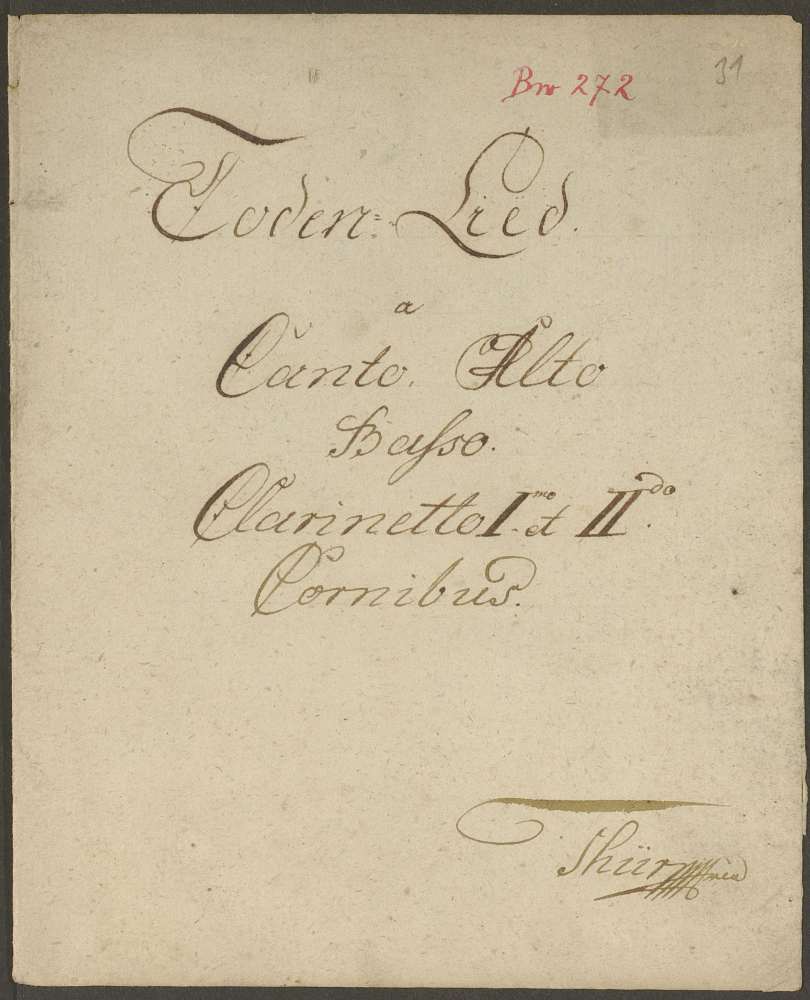 Brw 272
31
Toden=Lied.
a
Canto. Alto
Basso.
Clarinetto I.mo et II.do
Cornibus.
Thür